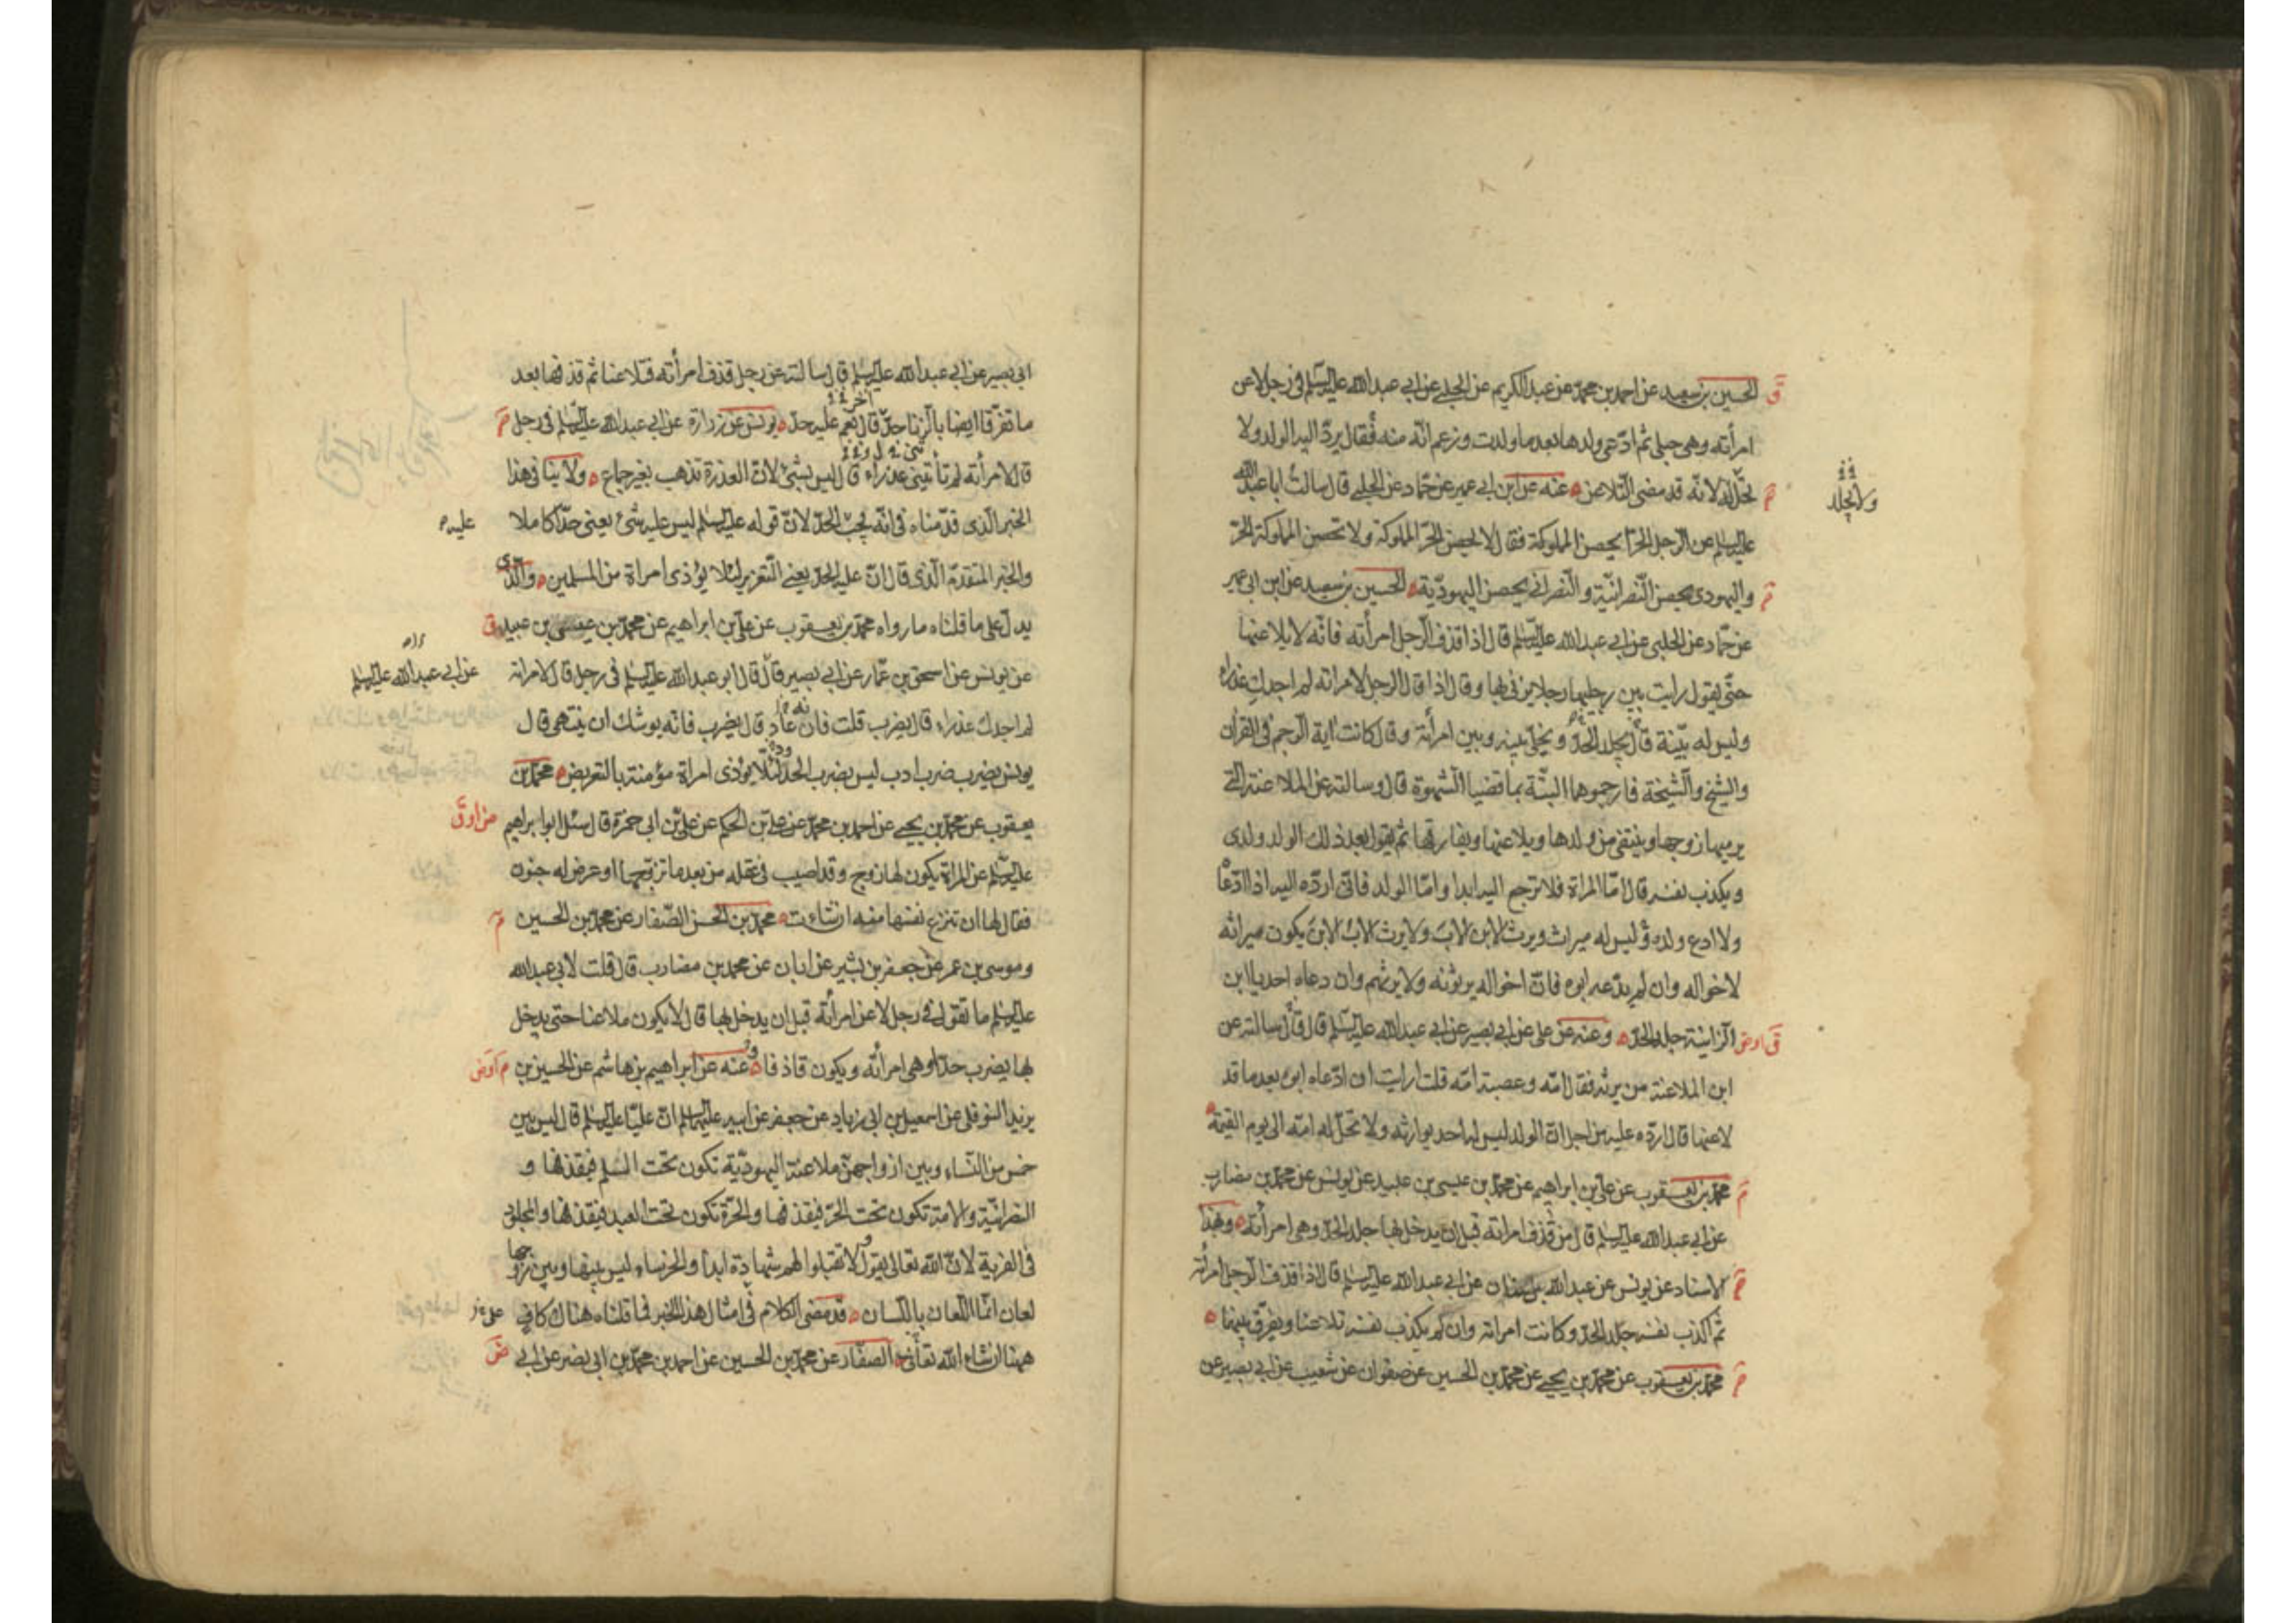 الحسين بن سعيد عن احمد بن محمد عن عبد الكريم عن الحلبي عن ابي عبد الله عليه السلم في رجل لاعن
امرأته وهي حبلى ثم ادّعى ولدها بعد ما ولدت وزعم انّه منه فقال يردّ اليه الولد ولا
تحلّ له لانّه قد مضى التّلاعن عنه عن ابن ابي عمير عن حماد عن الحلبي قال سالت ابا عبد الله
ولا يجلد
عليه السلم عن الرجل الحرّ ايحصن المملوكة فقال لا يحصن الحرّ المملوكة ولا تحصن المملوكة الحرّ
واليهودي يحصن النّصرانيّة والنّصراني يحصن اليهوديّة الحسين بن سعيد عن ابن ابي عمير
عن حمّاد عن الحلبي عن ابي عبد الله عليه السلم قال اذا قذف الرجل امرأته فانّه لا يلاعنها
حتّى يقول رايت بين رجليها رجلا يزني بها وقال اذا قال الرجل لامراته لم اجدك عذراء
وليس له بيّنة قال يجلد الحدّ ويخلّى بينه وبين امرأته وقال كانت اية الرجم في القران
والشيخ والشيخة فارجموهما البتّة بما قضيا الشهوة قال وسالته عن الملاعنة التي
يرميها زوجها وينتفي من ولدها ويلاعنها ويفارقها ثم يقول بعد ذلك الولد ولدي
ويكذب نفسه قال امّا المراة فلا ترجع اليه ابدا وامّا الولد فاني اردّه اليه اذا ادّعا
ولا ادع ولده وليس له ميراث ويرث الابن الاب ولا يرث الاب الابن يكون ميراثه
لاخواله وان لم يدّعه ابوه فانّ اخواله يرثونه ولا يرثهم وان دعاه احد يا ابن
الزانية جلد الحدّ وعنه عن علي عن ابي بصير عن ابي عبد الله عليه السلم قال قال سالته عن
ابن الملاعنة من يرثه فقال امّه وعصبة امّه قلت ارايت ان ادّعاه ابوه بعد ما قد
لاعنها قال اردّه عليه من اجل انّ الولد ليس له احد يوارثه ولا تحلّ له امّه الى يوم القيمة
محمّد بن يعقوب عن علي بن ابراهيم عن محمّد بن عيسى بن عبيد عن يونس عن محمّد بن مضارب
عن ابي عبد الله عليه السلم قال من قذف امراته قبل ان يدخل بها جلد الحدّ وهي امرأته وبهذا
الاسناد عن يونس عن عبد الله بن سنان عن ابي عبد الله عليه السلم قال اذا قذف الرجل امرأته
ثم اكذب نفسه جلد الحدّ وكانت امراته وان لم يكذب نفسه تلاعنا ويفرّق بينهما
محمّد بن يعقوب عن محمّد بن يحيى عن محمّد بن الحسين عن صفوان عن شعيب عن ابي بصير عن
ابي بصير عن ابي عبد الله عليه السلم قال سالته عن رجل قذف امرأته فتلاعنا ثم قذفها بعد
ما تفرّقا ايضا بالزنا حدّ قال نعم عليه حدّ يونس عن زرارة عن ابي عبد الله عليه السلم في رجل
قال لامرأته لم تأتيني عذراء قال ليس بشئ لانّ العذرة تذهب بغير جماع ولا ينافي هذا
الخبر الذي قدّمناه في انّه يجب الحدّ لانّ قوله عليه السلم ليس عليه شئ يعني حدّا كاملا
عليه
والخبر المتقدّم الذي قال انّ عليه الحدّ يعني التّعزير لئلا يؤذي امراة من المسلمين والّذي
يدلّ على ما قلناه ما رواه محمّد بن يعقوب عن علي بن ابراهيم عن محمّد بن عيسى بن عبيد
عن يونس عن اسحق بن عمّار عن ابي بصير قال قال ابو عبد الله عليه السلم في رجل قال لامراته
عن ابي عبد الله عليه السلم
لم اجدك عذراء قال يضرب قلت فان عاد قال يضرب فانه يوشك ان ينتهي قال
يونس يضرب ضرب ادب ليس بضرب الحدّ لئلّا يؤذي امراة مؤمنة بالتعريض محمّد بن
يعقوب عن محمّد بن يحيى عن احمد بن محمّد عن علي بن الحكم عن علي بن ابي حمزة قال سئل ابو ابراهيم
عليه السلم عن المراة يكون لها زوج وقد اصيب في عقله من بعد ما تزوّجها او عرض له جنون
فقال لها ان تنزع نفسها منه ان شاءت محمّد بن الحسن الصّفار عن محمّد بن الحسين
وموسى بن عمر عن جعفر بن بشير عن ابان عن محمد بن مضارب قال قلت لابي عبد الله
عليه السلم ما تقول في رجل لاعن امرأته قبل ان يدخل بها قال لا يكون ملاعنا حتى يدخل
بها يضرب حدّا وهي امرأته ويكون قاذفا وعنه عن ابراهيم بن هاشم عن الحسين بن
يزيد النوفلي عن اسمعيل بن ابي زياد عن جعفر عن ابيه عليهما السلم انّ عليّا عليه السلم قال ليس بين
خمس من النّساء وبين ازواجهنّ ملاعنة اليهوديّة تكون تحت المسلم فيقذفها و
النصرانيّة والامة تكون تحت الحرّ فيقذفها والحرّة تكون تحت العبد فيقذفها والمجلود
في الفرية لانّ الله تعالى يقول ولا تقبلوا لهم شهادة ابدا والخرساء ليس بينها وبين زوجها
لعان انّما اللّعان باللّسان قد مضى الكلام في امثال هذا الخبر فما قلناه هناك كافي
ههنا ان شاء الله تعالى الصفّار عن محمّد بن الحسين عن احمد بن محمّد بن ابي نصر عن ابي